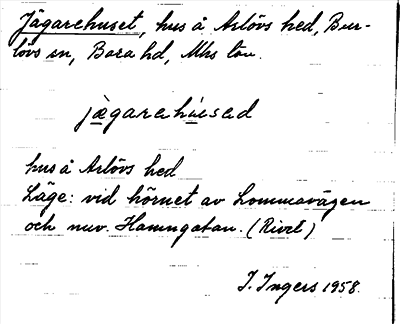 Jägarehuset, hus å Arlövs hed, Bur-
lövs sn, Bara hd, Mhs län.
jägarehúsad
hus å Arlövs hed
Läge: vid hörnet av Lommavägen
och nuv. Hamngatan. (Rivet)
I. Ingers 1958.